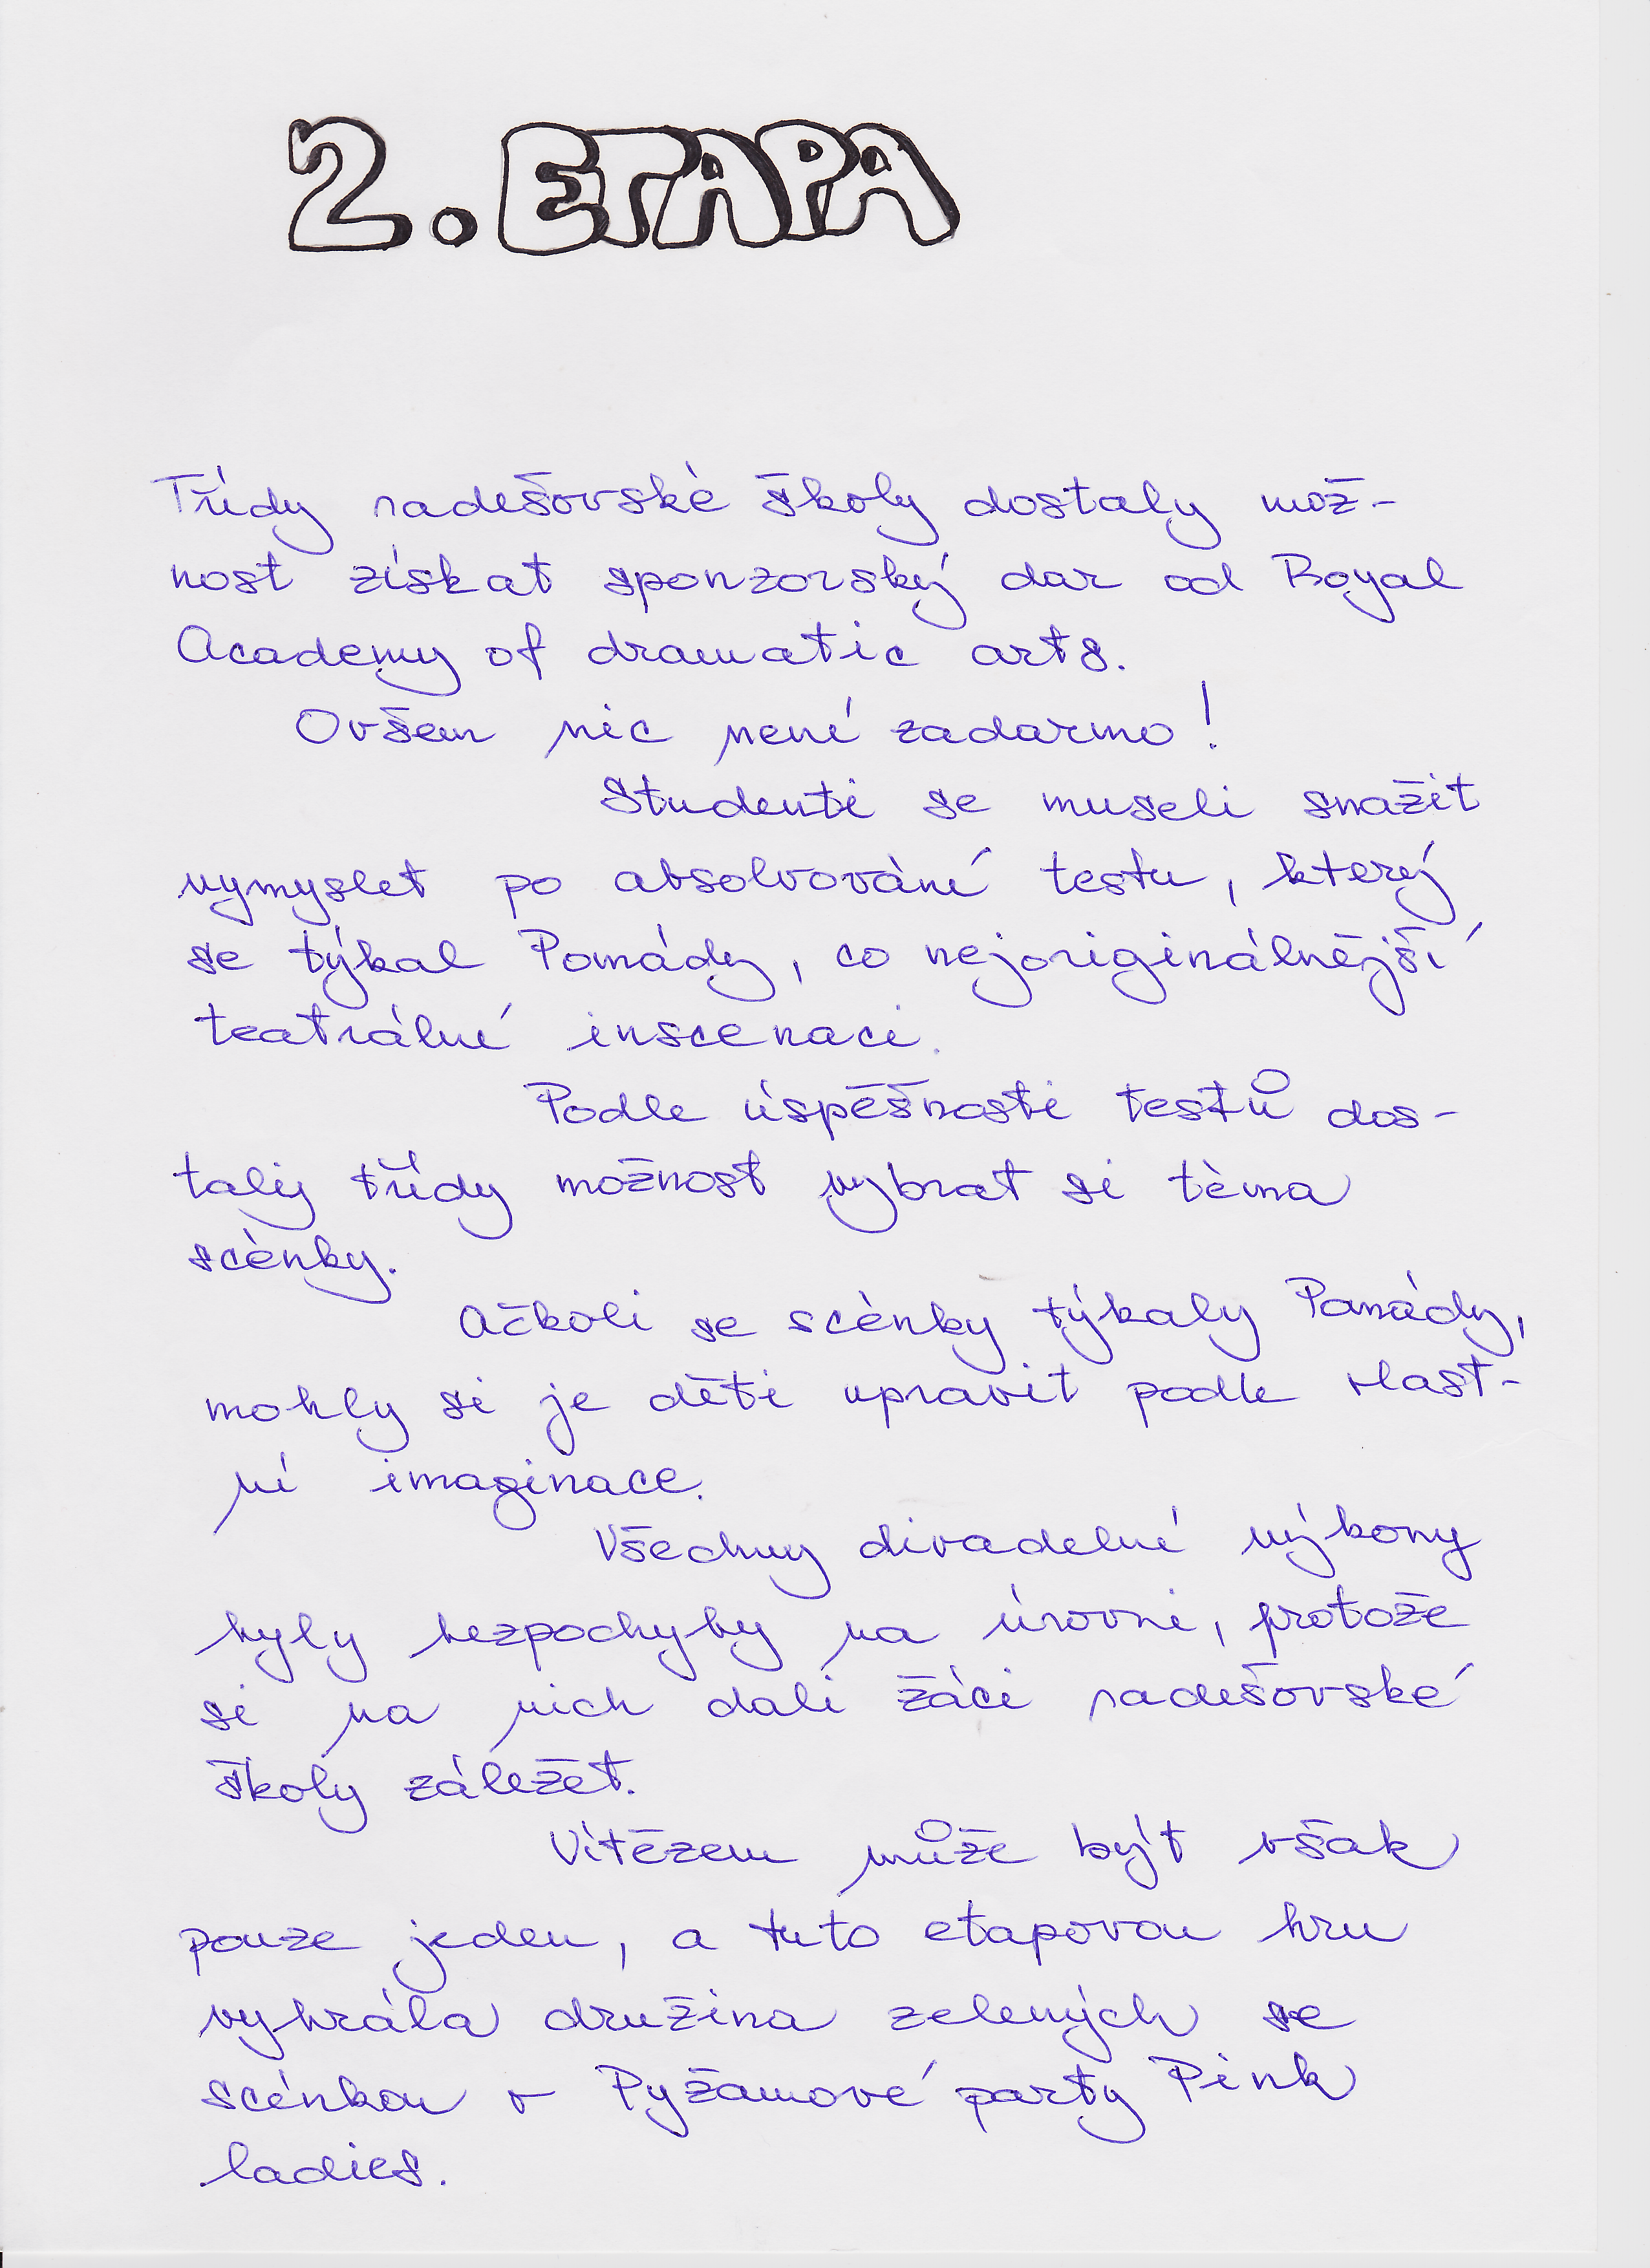 2. ETAPA
Třídy radešovské školy dostaly mož-
nost získat sponzorský dar od Royal
Academy of dramatic arts.
Ovšem nic není zadarmo!
Studenti se museli snažit
vymyslet po absolvování testu, který
se týkal Pomády, co nejoriginálnější
teatrální inscenaci.
Podle úspěšnosti testů dos-
taly třídy možnost vybrat si téma
scénky.
Ačkoli se scénky týkaly Pomády,
mohly si je děti upravit podle vlast-
ní imaginace.
Všechny divadelní výkony
byly bezpochyby na úrovni, protože
si na nich dali žáci radešovské
školy záležet.
Vítězem může být však
pouze jeden, a tuto etapovou hru
vyhrála družina zelených se
scénkou v Pyžamové party Pink
ladies.